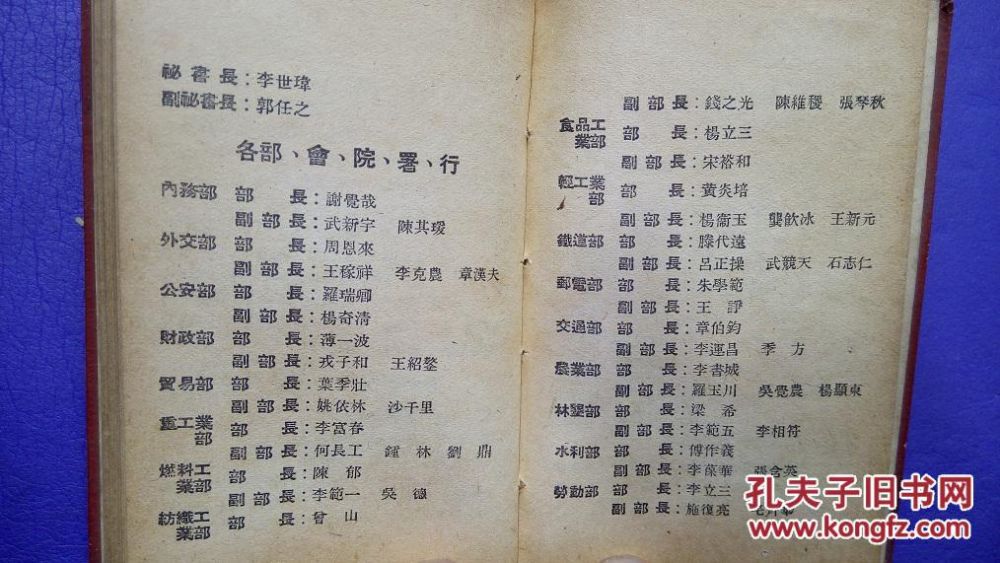 祕書長:李世璋
副祕書長:郭任之
各部、會、院、署、行
內務部 部長:謝覺哉
副部長:武新宇 陳其瑗
外交部 部長:周恩來
副部長:王稼祥 李克農 章漢夫
公安部 部長:羅瑞卿
副部長:楊奇清
財政部 部長:薄一波
副部長:戎子和 王紹鏊
貿易部 部長:葉季壯
副部長:姚依林 沙千里
重工業部 部長:李富春
副部長:何長工 鍾林 劉鼎
燃料工業部 部長:陳郁
副部長:李範一 吳德
紡織工業部 部長:曾山
副部長:錢之光 陳維稷 張琴秋
食品工業部 部長:楊立三
副部長:宋裕和
輕工業部 部長:黃炎培
副部長:楊衞玉 龔飲冰 王新元
鐵道部 部長:滕代遠
副部長:呂正操 武競天 石志仁
郵電部 部長:朱學範
副部長:王諍
交通部 部長:章伯鈞
副部長:李運昌 季方
農業部 部長:李書城
副部長:羅玉川 吳覺農 楊顯東
林墾部 部長:梁希
副部長:李範五 李相符
水利部 部長:傅作義
副部長:李葆華 張含英
勞動部 部長:李立三
副部長:施復亮
孔夫子旧书网
www.kongfz.com